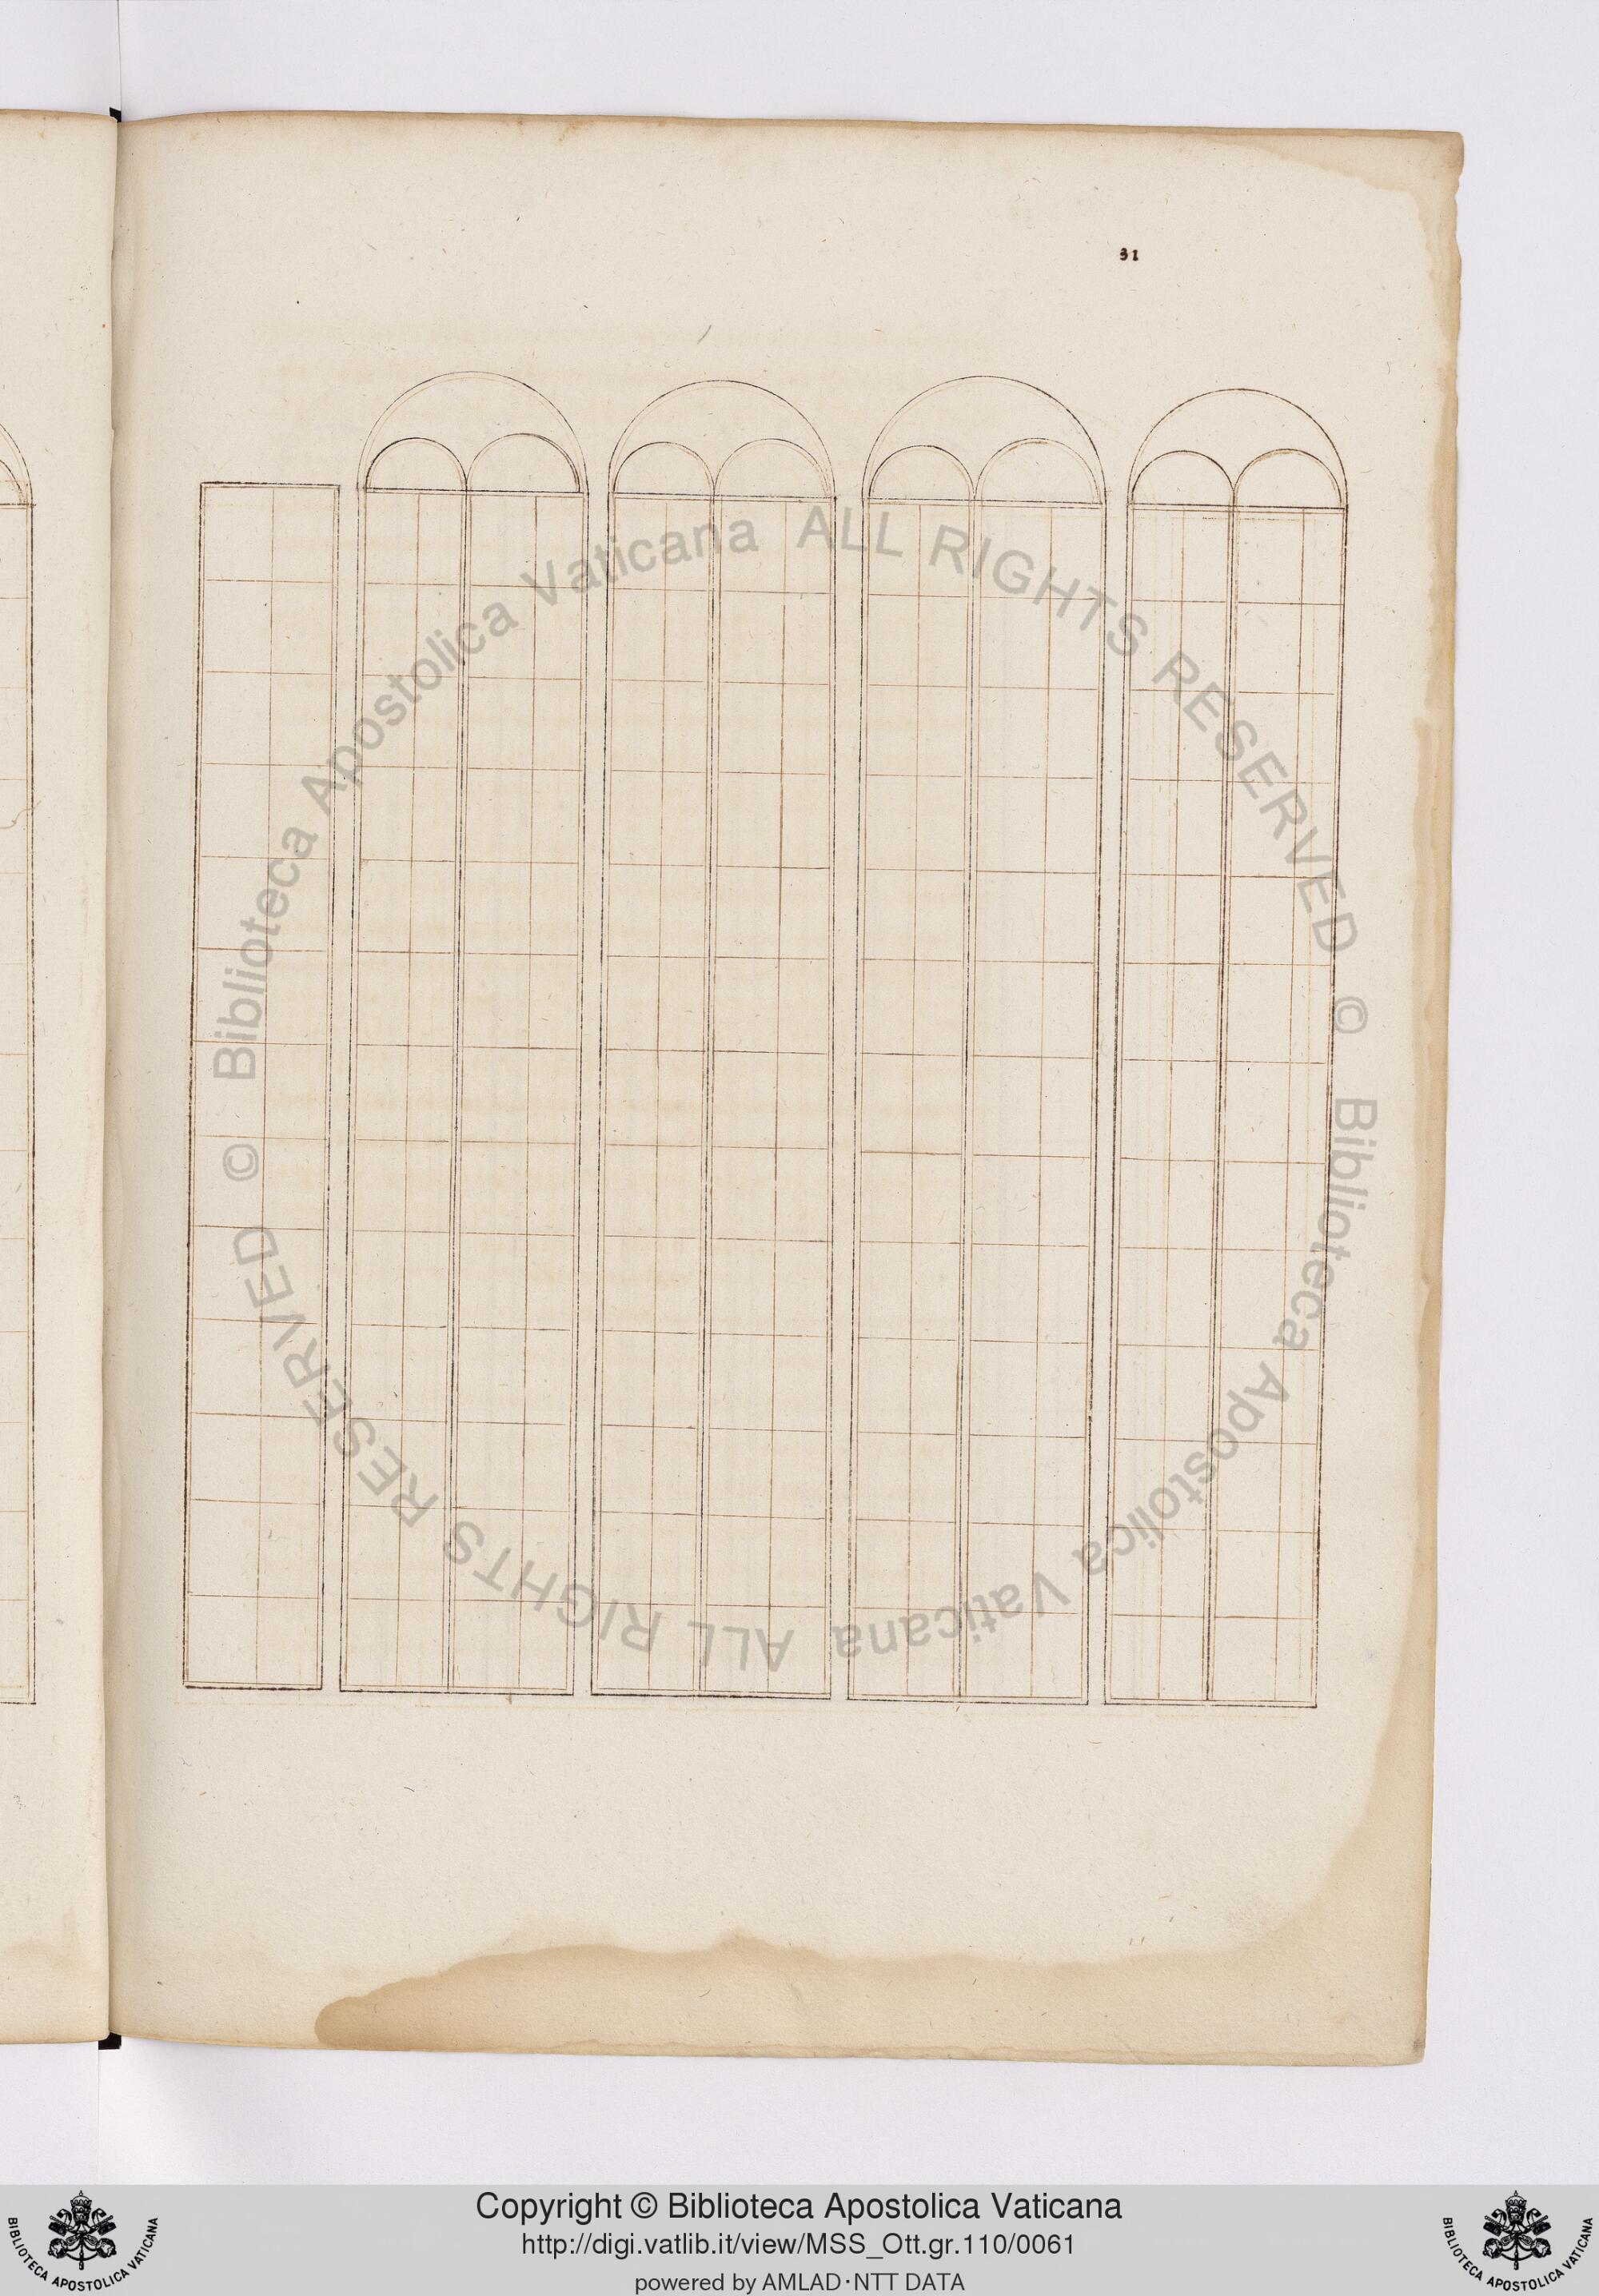 31
© Biblioteca Apostolica Vaticana ALL RIGHTS RESERVED © Biblioteca Apostolica Vaticana ALL RIGHTS RESERVED
Copyright © Biblioteca Apostolica Vaticana
http://digi.vatlib.it/view/MSS_Ott.gr.110/0061
powered by AMLAD·NTT DATA
BIBLIOTECA APOSTOLICA VATICANA
BIBLIOTECA APOSTOLICA VATICANA